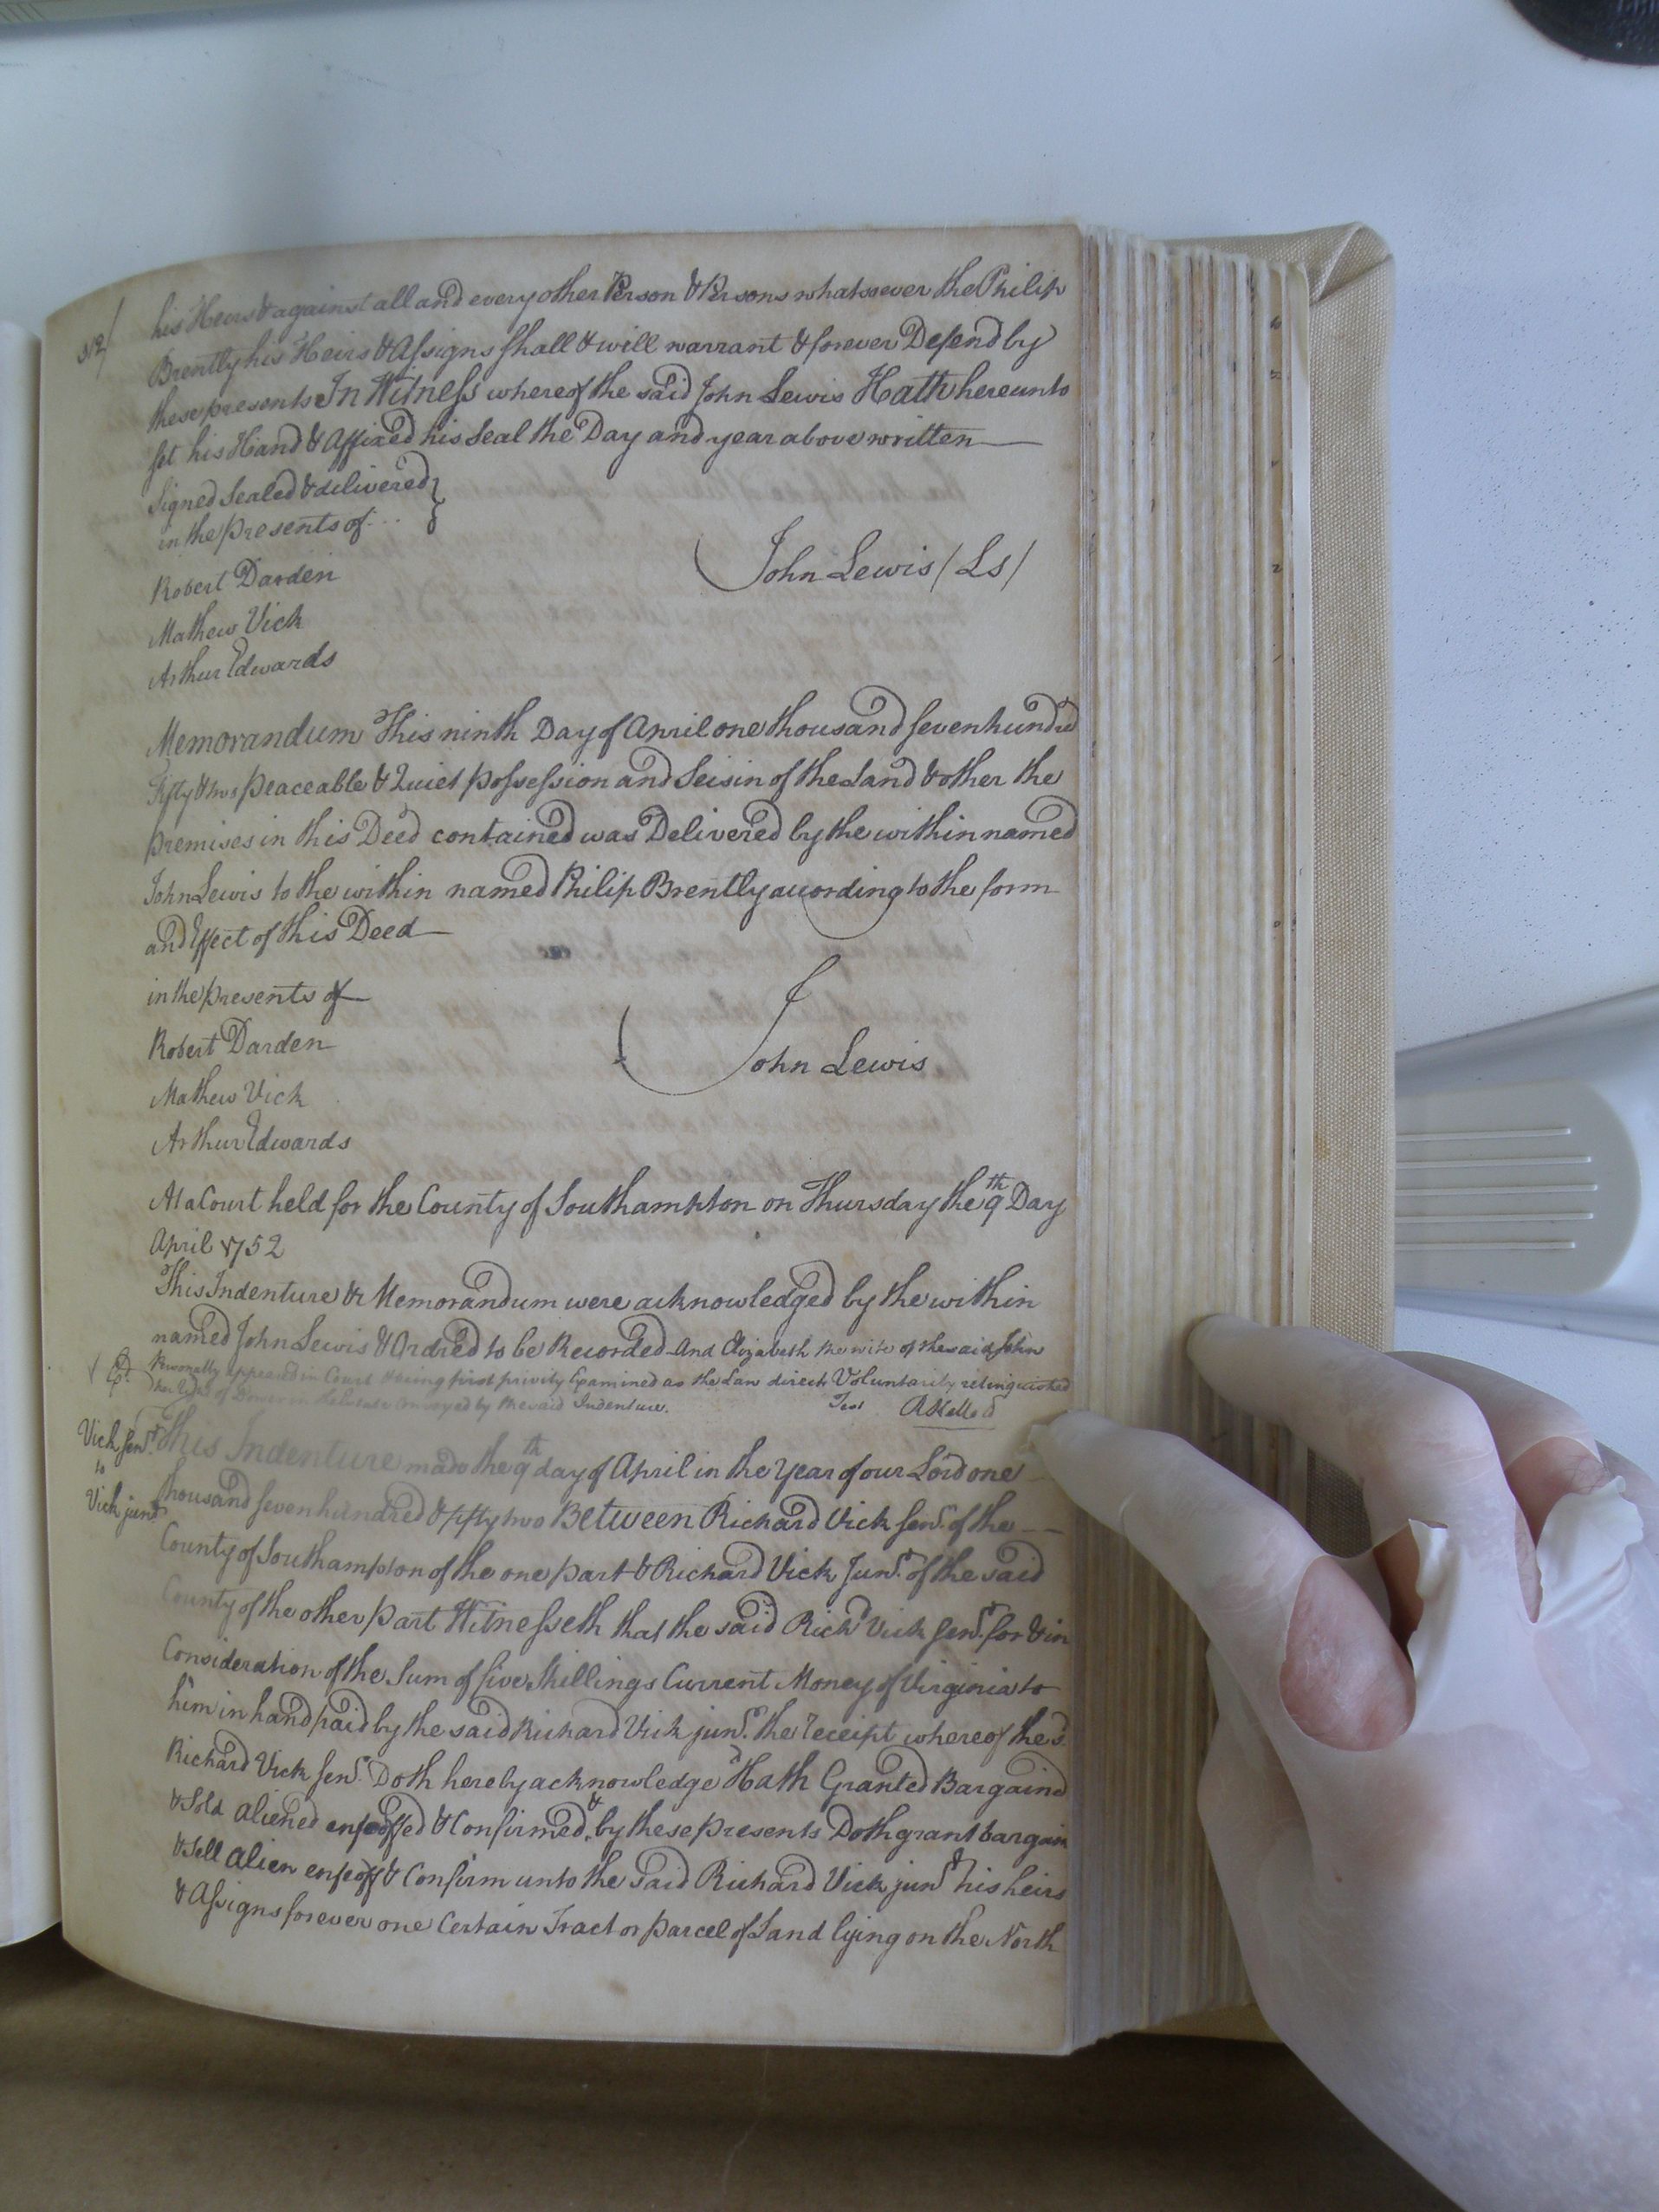 312/
his Heirs & against all and every other Person & Persons whatsoever the Philip
Brently his Heirs & Assigns shall & will warrant & forever Defend by
these presents In Witness whereof the said John Lewis Hath hereunto
set his Hand & Affixed his Seal the Day and year above written
Signed Sealed & delivered
in the presents of...
John Lewis /Ls/
Robert Darden
Mathew Vick
Arthur Edwards
Memorandum This ninth Day of April one thousand seven hundred
Fifty & two peaceable & Quiet possession and Seisin of the Land & other the
premises in this Deed contained was Delivered by the within named
John Lewis to the within named Philip Brently according to the form
and Effect of this Deed
in the presents of
John Lewis
Robert Darden
Mathew Vick
Arthur Edwards
At a Court held for the County of Southampton on Thursday the 9th Day
April 1752
This Indenture & Memorandum were acknowledged by the within
named John Lewis & Ordred to be Recorded And Elizabeth the wife of the said John
Personally appeared in Court & being first privily Examined as the Law directs Voluntarily relinquished
her Right of Dower in the Estate Conveyed by the said Indenture.
Test
Vick senr
to
Vick junr
This Indenture made the 9th day of April in the Year of our Lord one
thousand seven hundred & fifty two Between Richard Vick senr. of the
County of Southampton of the one part & Richard Vick Junr. of the said
County of the other part Witnesseth that the said Richd Vick senr. for & in
Consideration of the Sum of five Shillings Current Money of Virginia to
him in hand paid by the said Richard Vick junr. the receipt whereof the sd.
Richard Vick senr. Doth hereby acknowledge Hath Granted Bargaind
& Sold aliened enfeoffed & Confirmed & by these presents Doth grant bargain
& Sell alien enfeoff & Confirm unto the Said Richard Vick junr his heirs
& Assigns forever one Certain Tract or parcel of Land lying on the North